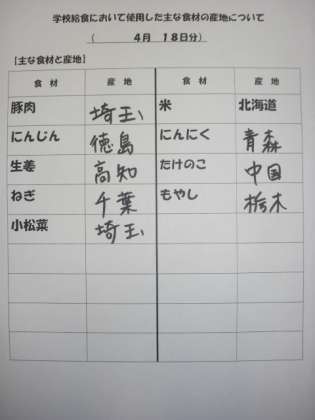 学校給食において使用した主な食材の産地について
( 4月 18日分)
[主な食材と産地]
食 材 産 地 食 材 産 地
豚肉 埼玉 米 北海道
にんじん 徳島 にんにく 青森
生姜 高知 たけのこ 中国
ねぎ 千葉 もやし 栃木
小松菜 埼玉